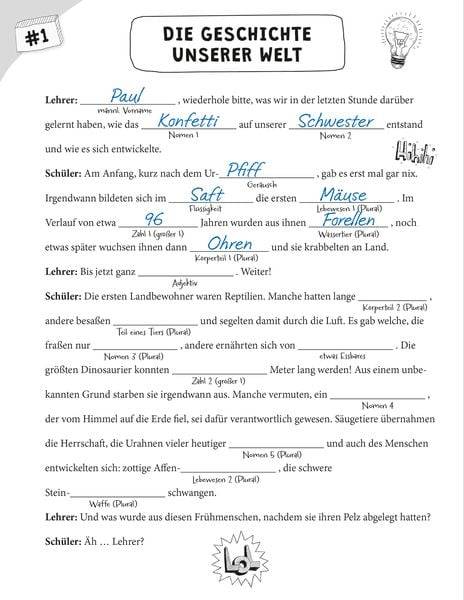 #1
DIE GESCHICHTE
UNSERER WELT
Lehrer: Paul, wiederhole bitte, was wir in der letzten Stunde darüber
männl. Vorname
gelernt haben, wie das Konfetti auf unserer Schwester entstand
Nomen 1 Nomen 2
und wie es sich entwickelte.
Hihihi
Schüler: Am Anfang, kurz nach dem Ur-Pfiff, gab es erst mal gar nix.
Geräusch
Irgendwann bildeten sich im Saft die ersten Mäuse. Im
Flüssigkeit Lebewesen 1 (Plural)
Verlauf von etwa 96 Jahren wurden aus ihnen Forellen, noch
Zahl 1 (größer 1) Wassertier (Plural)
etwas später wuchsen ihnen dann Ohren und sie krabbelten an Land.
Körperteil 1 (Plural)
Lehrer: Bis jetzt ganz ____________. Weiter!
Adjektiv
Schüler: Die ersten Landbewohner waren Reptilien. Manche hatten lange ____________,
Körperteil 2 (Plural)
andere besaßen ____________ und segelten damit durch die Luft. Es gab welche, die
Teil eines Tiers (Plural)
fraßen nur ____________, andere ernährten sich von ____________. Die
Nomen 3 (Plural) etwas Essbares
größten Dinosaurier konnten ____________ Meter lang werden! Aus einem unbe-
Zahl 2 (größer 1)
kannten Grund starben sie irgendwann aus. Manche vermuten, ein ____________,
Nomen 4
der vom Himmel auf die Erde fiel, sei dafür verantwortlich gewesen. Säugetiere übernahmen
die Herrschaft, die Urahnen vieler heutiger ____________ und auch des Menschen
Nomen 5 (Plural)
entwickelten sich: zottige Affen-____________, die schwere
Lebewesen 2 (Plural)
Stein-____________ schwangen.
Waffe (Plural)
Lehrer: Und was wurde aus diesen Frühmenschen, nachdem sie ihren Pelz abgelegt hatten?
Schüler: Äh … Lehrer?
LOL